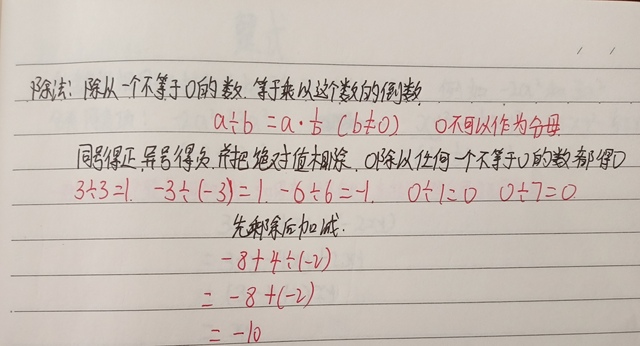 除法：除以一个不等于0的数，等于乘以这个数的倒数
a÷b=a·1/b（b≠0） 0不可以作为分母
同号得正，异号得负，并把绝对值相除，0除以任何一个不等于0的数都得0
3÷3=1. -3÷(-3)=1. -6÷6=-1. 0÷1=0 0÷7=0
先乘除后加减.
-8+4÷(-2)
= -8+(-2)
= -10